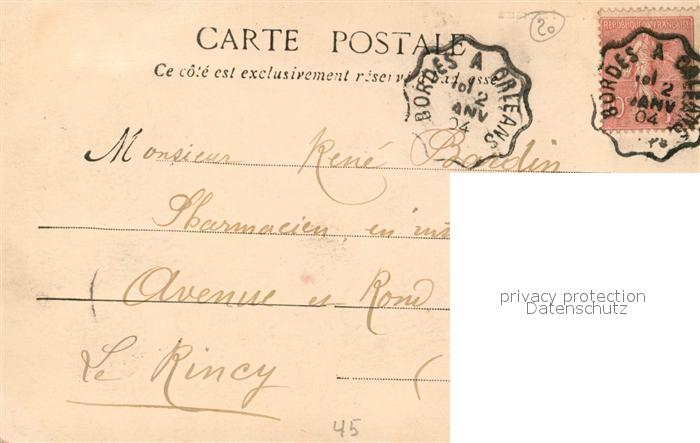 20
CARTE POSTALE
Ce côté est exclusivement réservé à l'adresse
REPUBLIQUE FRANÇAISE
BORDES A ORLEANS
1o1
2
JANV
04
BORDES A ORLEANS
1o1
2
JANV
04
Monsieur René Bardin
Pharmacien, en
Avenue Rond
Le Rincy
45
privacy protection
Datenschutz